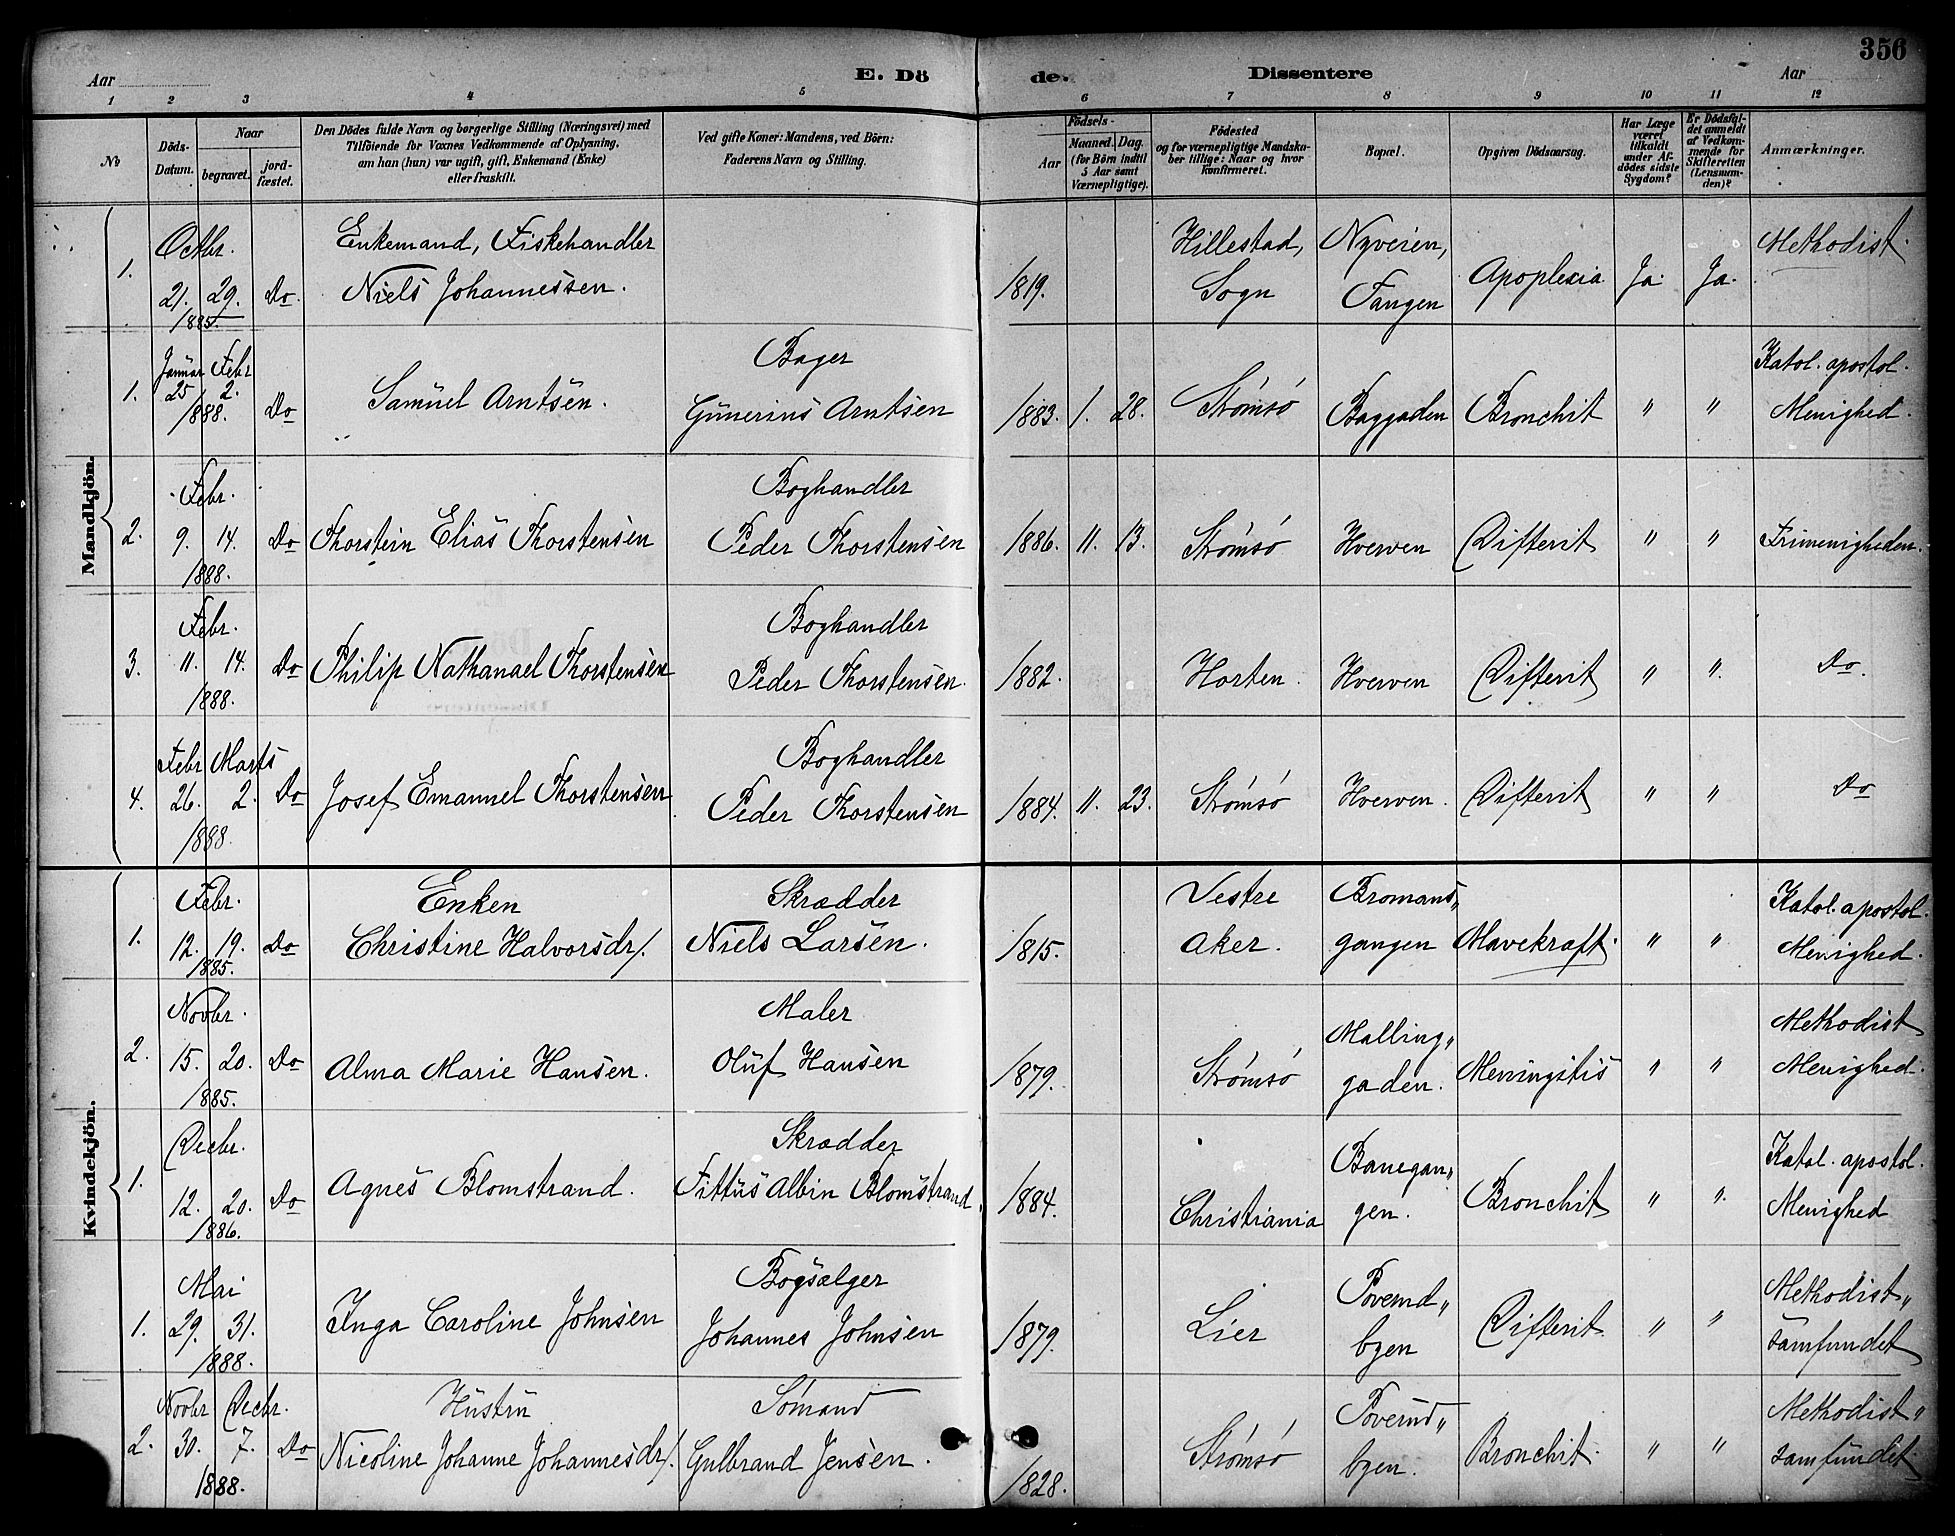 356
Aar
E. Dö
de.
Dissentere
Aar
1 2 3 4 5 6 7 8 9 10 11 12
No
Döds-
Datum.
Naar
begravet.
jord-
fæstet.
Den Dödes fulde Navn og borgerlige Stilling (Næringsvei) med
Tilföiende for Voxnes Vedkommende af Oplysning,
om han (hun) var ugift, gift, Enkemand (Enke)
eller fraskilt.
Ved gifte Koner: Mandens, ved Börn:
Faderens Navn og Stilling.
Födsels-
Aar
Maaned. Dag.
(for Börn indtil
5 Aar samt
Værnepligtige).
Födested
og for værnepligtige Mandska-
ber tillige: Naar og hvor
konfirmeret.
Bopæl.
Opgiven Dödsaarsag.
Har Læge
været
tilkaldt
under Af-
dödes sidste
Sygdom?
Er Dödsfal-
det anmeldt
af Vedkom-
mende for
Skifteretten
(Lensmæn-
den)?
Anmærkninger.
Mandkjön.
Octbr. Enkemand, Fiskehandler Hillestad, Nyveien, Methodist.
1. 21. 29. Do. Niels Johannessen. 1819. Sogn Tangen Apoplexia Ja. Ja.
1885.
Januar Febr Bager Katol. apostol.
1. 25 2. Do Samuel Arntsen. Gunerius Arntsen 1883. 1. 28. Strømsø Baggaden Bronchit " " Menighed.
1888.
Febr. Boghandler
2. 9. 14. Do Thorstein Elias Thorstensen Peder Thorstensen 1886. 11. 13. Strømsø Hverven Difterit " " Frimenigheden.
1888.
Febr. Boghandler
3. 11. 14. Do Philip Nathanael Thorstensen Peder Thorstensen. 1882. Horten. Hverven Difterit " " Do.
1888.
Febr Marts Boghandler
4. 26. 2. Do Josef Emanuel Thorstensen Peder Thorstensen 1884. 11. 23. Strømsø Hverven. Difterit " " Do
1888.
Kvindekjön.
Febr. Enken Skrædder Vestre Bromans" Katol. apostol.
1. 12. 19. Do Christine Halvorsdr/. Niels Larsen. 1815. Aker. gangen Mavekræft. " " Menighed.
1885.
Novbr. Maler Malling" Methodist
2. 15. 20. Do Alma Marie Hansen. Oluf Hansen 1879. Strømsø gaden. Meningitis " " Menighed.
1885.
Decbr. Skrædder Banegan" Katol. apostol.
1. 12. 20. Do Agnes Blomstrand. Fittus Albin Blomstrand. 1884. Christiania gen. Bronchit " " Menighed
1886.
Mai Bogsælger Methodist"
1. 29. 31. Inga Caroline Johnsen Johannes Johnsen 1879. Lier byen Difterit " " samfundet
1888.
Novbr Decbr. Hustru Sømand Methodist"
2. 30. 7. Do Nicoline Johanne Johannesdr/. Gulbrand Jensen. 1828. Strømsø byen. Bronchit. " " samfundet
1888.